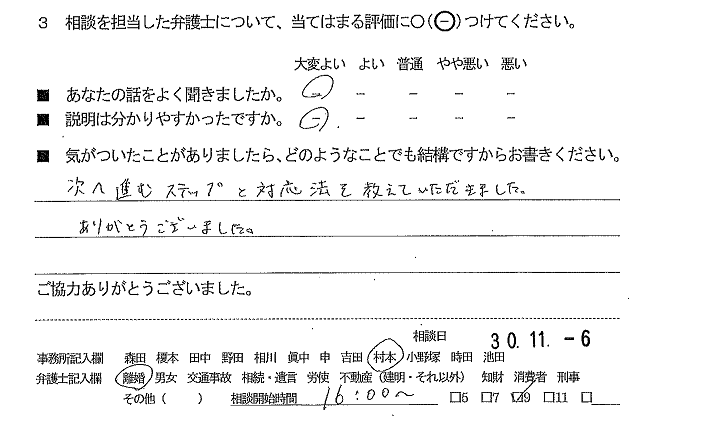 3 相談を担当した弁護士について、当てはまる評価に○(⊖)つけてください。
大変よい よい 普通 やや悪い 悪い
■ あなたの話をよく聞きましたか。 － － － － －
■ 説明は分かりやすかったですか。 － － － － －
■ 気がついたことがありましたら、どのようなことでも結構ですからお書きください。
次へ進むステップと対応法を教えていただきました。
ありがとうございました。
ご協力ありがとうございました。
相談日 30.11.-6
事務所記入欄 森田 榎本 田中 野田 相川 眞中 申 吉田 村本 小野塚 時田 池田
弁護士記入欄 離婚 男女 交通事故 相続・遺言 労使 不動産（建明・それ以外） 知財 消費者 刑事
その他（ ） 相談開始時間 16:00～ □5 □7 ☑9 □11 □